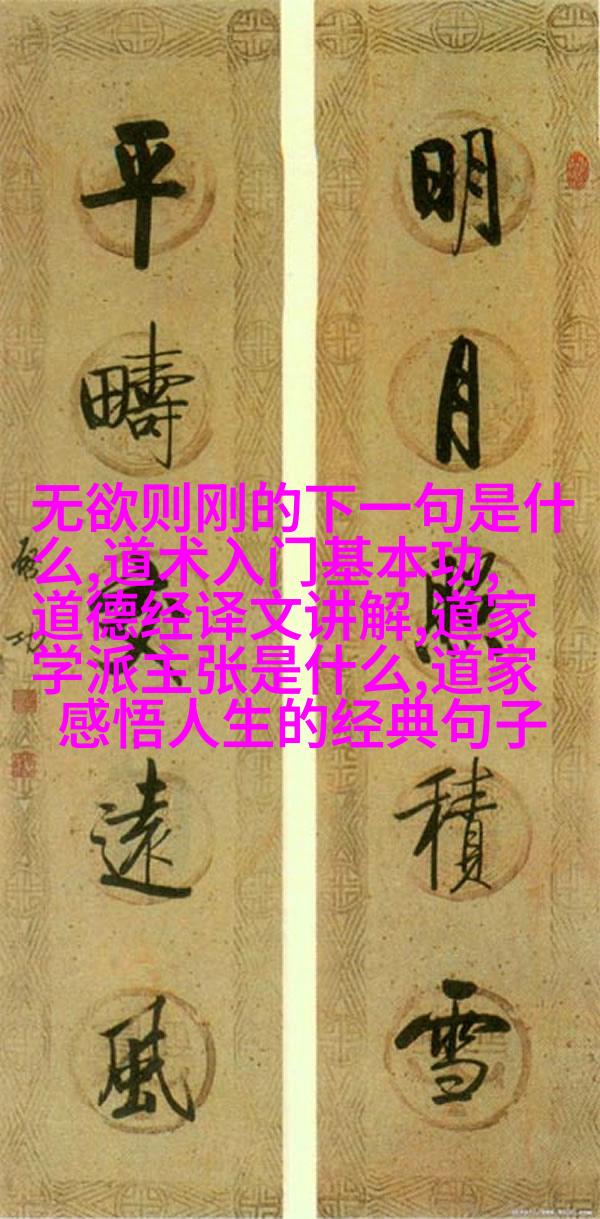 明月照積雪
平疇交遠風
啓功
无欲则刚的下一句是什
么,道术入门基本功,
道德经译文讲解,道家
学派主张是什么,道家
感悟人生的经典句子